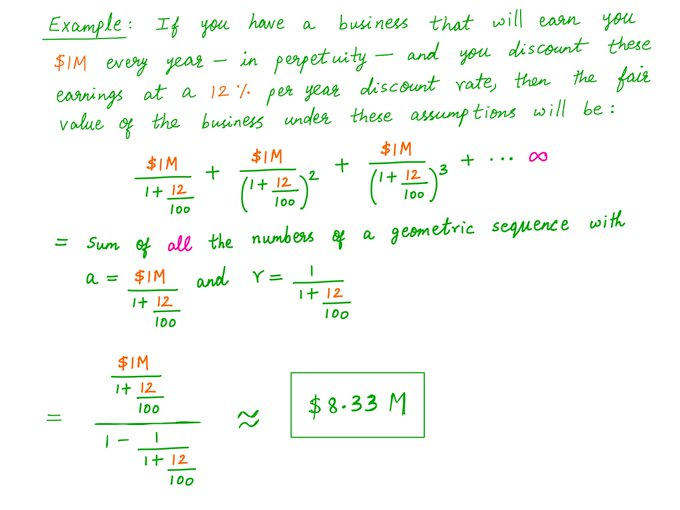 Example: If you have a business that will earn you
$1M every year — in perpetuity — and you discount these
earnings at a 12% per year discount rate, then the fair
value of the business under these assumptions will be:
$1M/(1 + 12/100) + $1M/(1 + 12/100)^2 + $1M/(1 + 12/100)^3 + ... ∞
= Sum of all the numbers of a geometric sequence with
a = $1M/(1 + 12/100) and r = 1/(1 + 12/100)
= ($1M/(1 + 12/100))/(1 - 1/(1 + 12/100)) ≈ $8.33 M